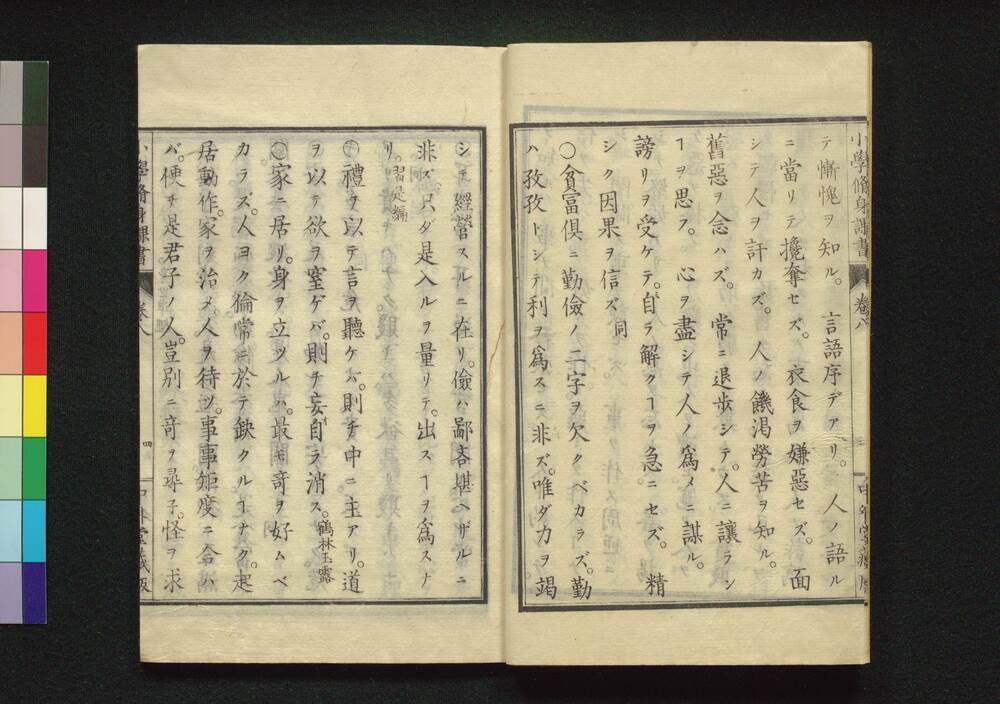 小學脩身課書
卷八
テ慚愧ヲ知ル。言語序デアリ。人ノ語ル
ニ當リテ攙奪セズ。衣食ヲ嫌惡セズ。面
シテ人ヲ訐カズ。人ノ饑渇勞苦ヲ知ル。
舊惡ヲ念ハズ。常ニ退歩シテ。人ニ讓ラン
ヿヲ思フ。心ヲ盡シテ人ノ爲メニ謀ル。
謗リヲ受ケテ。自ラ解クヿヲ急ニセズ。精
シク因果ヲ信ズ。同
○貧富俱ニ勤儉ノ二字ヲ欠クベカラズ。勤
ハ孜孜トシテ利ヲ爲スニ非ズ。唯ダ力ヲ竭
シテ經營スルニ在リ。儉ハ鄙吝堪ヘザルニ
非ズ。只ダ是入ルヲ量リテ。出スヿヲ爲スナ
リ。習是編
○禮ヲ以テ言ヲ聽ケバ。則チ中ニ主アリ。道
ヲ以テ欲ヲ窒ゲバ。則チ妄自ラ消ス。鶴林玉露
○家ニ居リ。身ヲ立ツルハ。最モ奇ヲ好ムベ
カラズ。人ヨク倫常ニ於テ缺クルヿナク。起
居動作。家ヲ治メ。人ヲ待ツ。事事矩度ニ合ハ
バ。便チ是君子ノ人。豈別ニ奇ヲ尋子。怪ヲ求
小學脩身課書
卷八
四